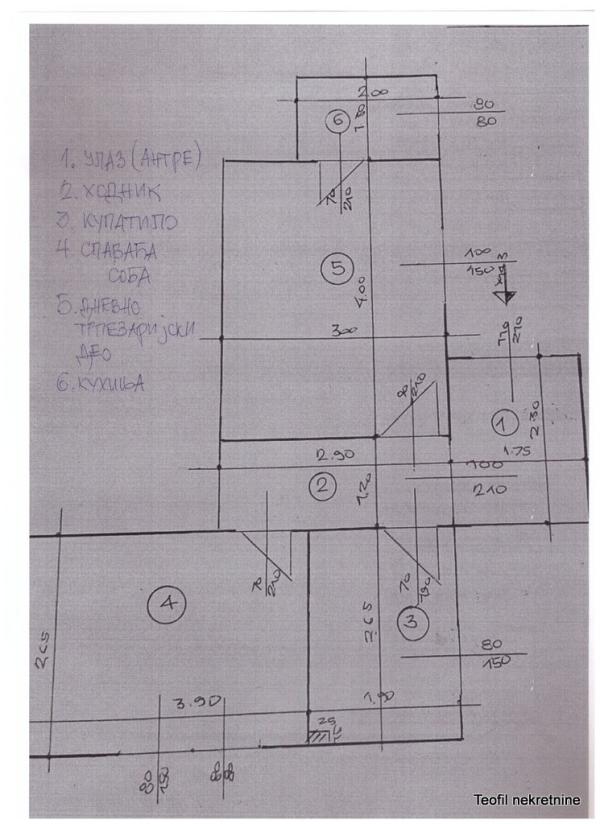 1. УЛАЗ (АНТРЕ)
2. ХОДНИК
3. КУПАТИЛО
4. СПАВАЋА
СОБА
5. ДНЕВНО
ТРПЕЗАРИЈСКИ
ДЕО
6. КУХИЊА
2.00
6
1.8
80
80
70
210
5
100
150
4.00
3.00
110
210
80
210
1
2.30
2.90
1.75
2
1.20
100
210
70
210
70
190
4
3
2.65
2.65
80
150
3.90
1.90
25
80
150
Teofil nekretnine